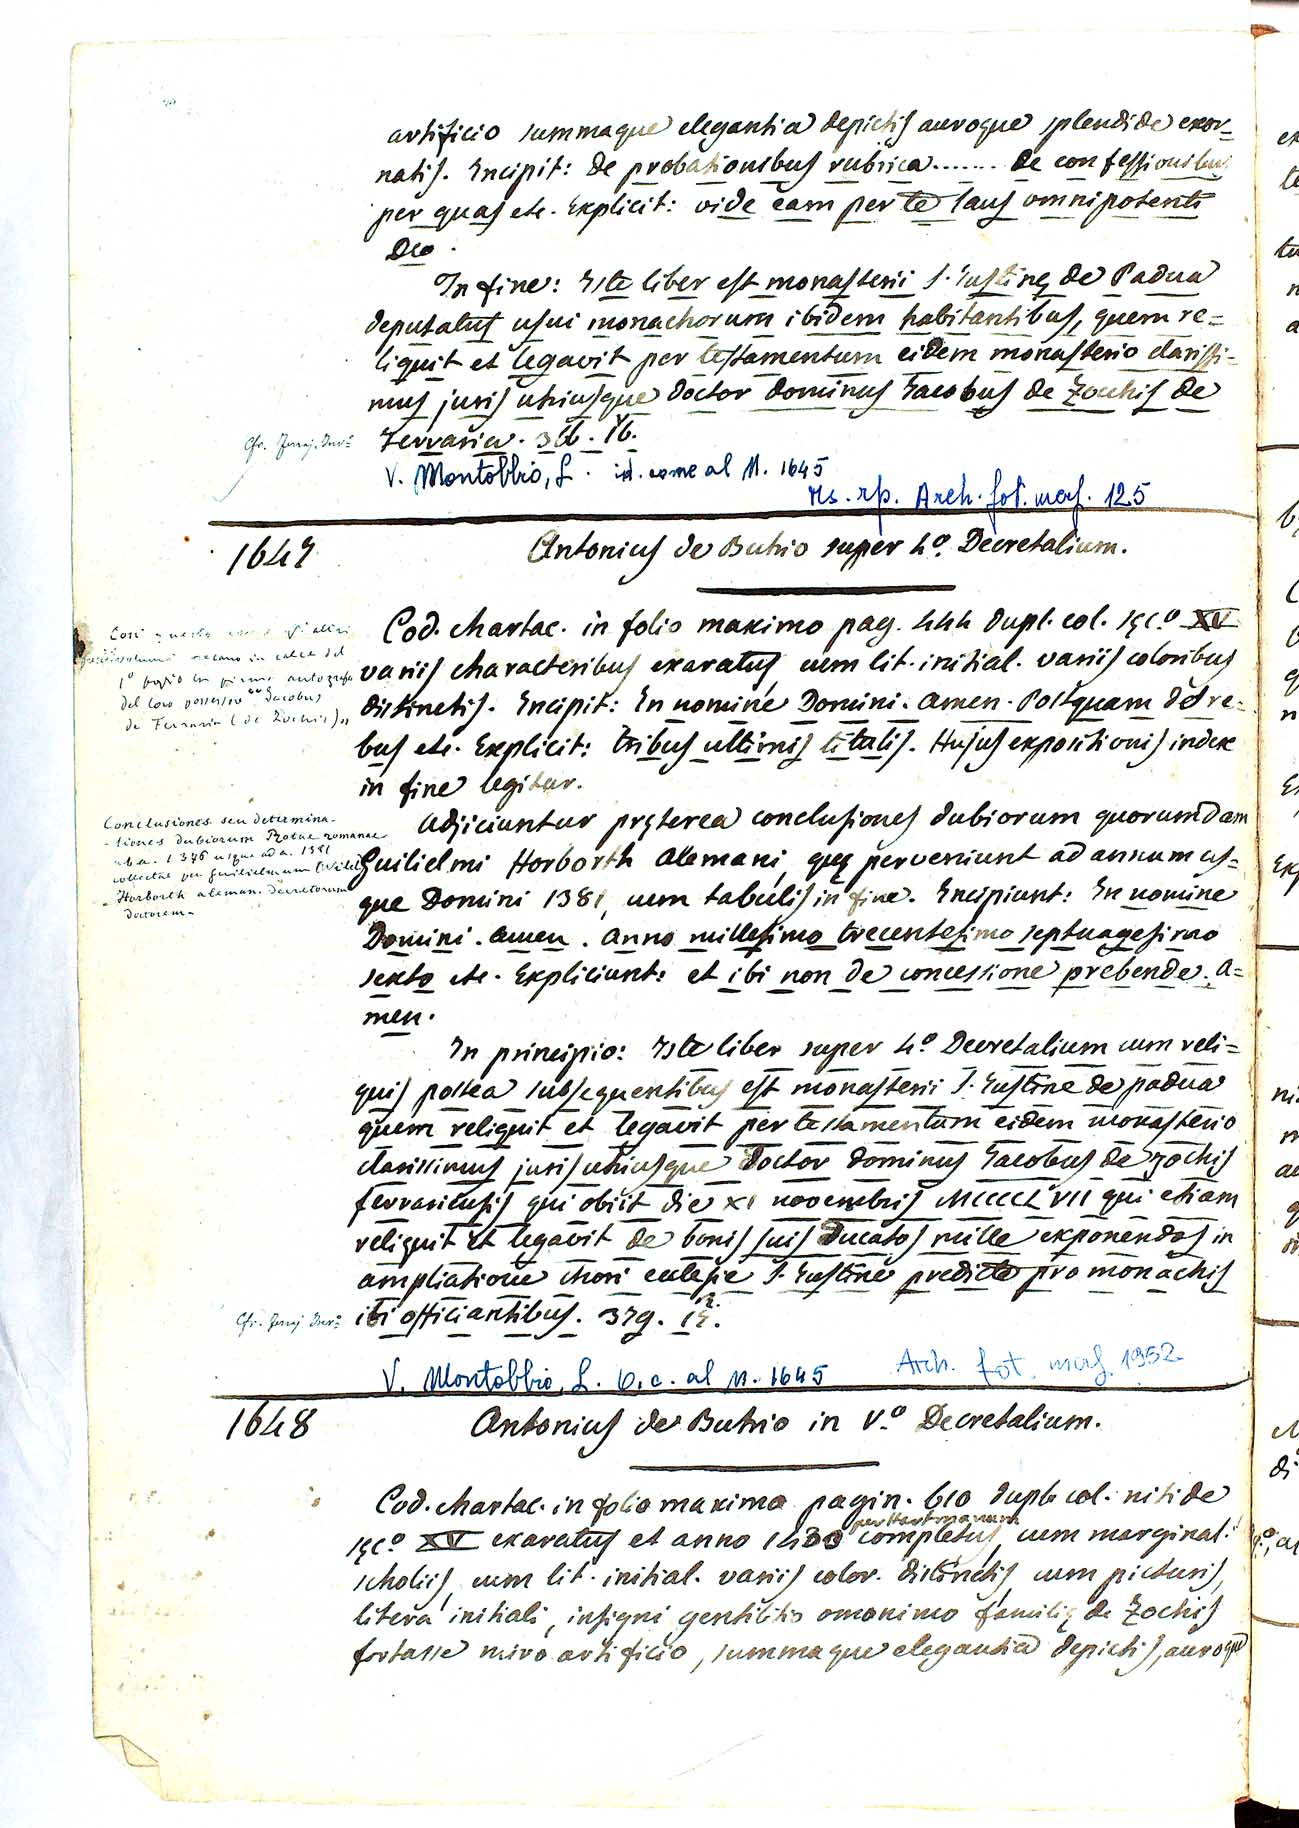 artificio summaque elegantia depictis auroque splendide exor=
natis. Incipit: De probationibus rubrica....... De confessionibus
per quas etc. Explicit: vide eam per te laus omnipotenti
Deo.
In fine: Iste liber est monasterii S. Iustinę de Padua
deputatus usui monachorum ibidem habitantibus, quem re=
liquit et legavit per testamentum eidem monasterio clarissi=
mus juris utriusque doctor dominus Iacobus de Zochis de
Ferraria. 366.
Cfr.
V. Montobbio, L. id. come al N. 1645
Ms. rp. Arch. fot. neg. 125
1647
Antonius de Butrio super 4.º Decretalium.
Cod. chartac. in folio maximo pag. 444 dupl. col. sęc.º XV
variis characteribus exaratus, cum lit. initial. variis coloribus
distinctis. Incipit: In nomine Domini. Amen. Postquam de re=
bus etc. Explicit: tribus ultimis titulis. Hujus expositionis index
in fine legitur.
Così questo
recano in calce del
1º foglio la firma autografa
del loro possessore Jacobus
de Ferraria (de Zochis)
Adjiciuntur pręterea conclusiones dubiorum quorumdam
Guilielmi Horborth Alemani, quę perveniunt ad annum us=
que Domini 1381, cum tabulis in fine. Incipiunt: In nomine
Domini. Amen. Anno millesimo trecentesimo septuagesimo
sexto etc. Expliciunt: et ibi non de concessione prebende. A=
men.
Conclusiones seu determina-
-tiones dubiorum Rotae romanae
ab a. 1376 usque ad a. 1381
collectae per Guilielmum
Horborth aleman. Decretorum
doctorem.
In principio: Iste liber super 4.º Decretalium cum reli=
quis postea subsequentibus est monasterii S. Iustine de padua
quem reliquit et legavit per testamentum eidem monasterio
clarissimus juris utriusque doctor dominus Iacobus de zochis
ferrariensis qui obiit die XI novembris MCCCCLVII qui etiam
reliquit et legavit de bonis suis Ducatos mille exponendos in
ampliatione chori eclesie S. Iustine predicte pro monachis
ibi officiantibus. 379.
Cfr.
V. Montobbio, L. o. c. al N. 1645
Arch. fot. neg. 1952
1648
Antonius de Butrio in V.º Decretalium.
Cod. chartac. in folio maximo pagin. 610 dupl. col. nitide
sęc.º XV exaratus et anno 1430 per Hartmanum completus, cum marginal.
scholiis, cum lit. initial. variis color. distinctis, cum picturis,
litera initiali, insigni gentilitio omonimo familię de Zochis
fortasse miro artificio, summaque elegantia depictis, auroque